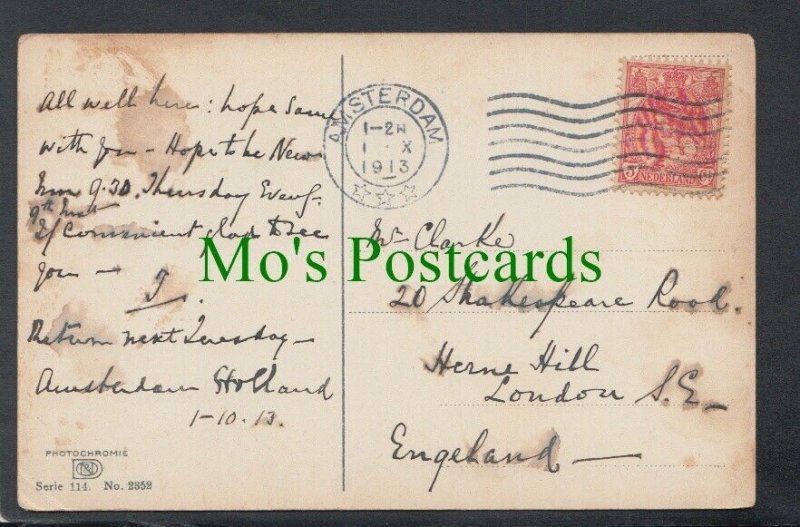 All well here: hope same
with you - Hope to be New
Inn 9.30. Thursday Eveng.
9th Inst
If Convenient glad to see
you —
J.
Return next Tuesday —
Amsterdam Holland
1-10.13.
PHOTOCHROMIE
Serie 114. No. 2352
AMSTERDAM
1-2N
X
1913
NEDERLAND
Clarke
20 Shakespeare Road.
Herne Hill
London S.E —
Engeland —
Mo's Postcards